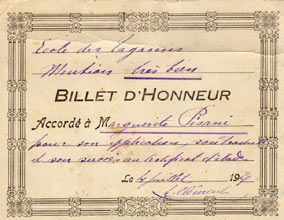 Ecole des
Mention très bien
BILLET D'HONNEUR
Accordé à Marguerite Pisani
pour son application, son travail
et son succès au Certificat d'études
Le 4 juillet 19